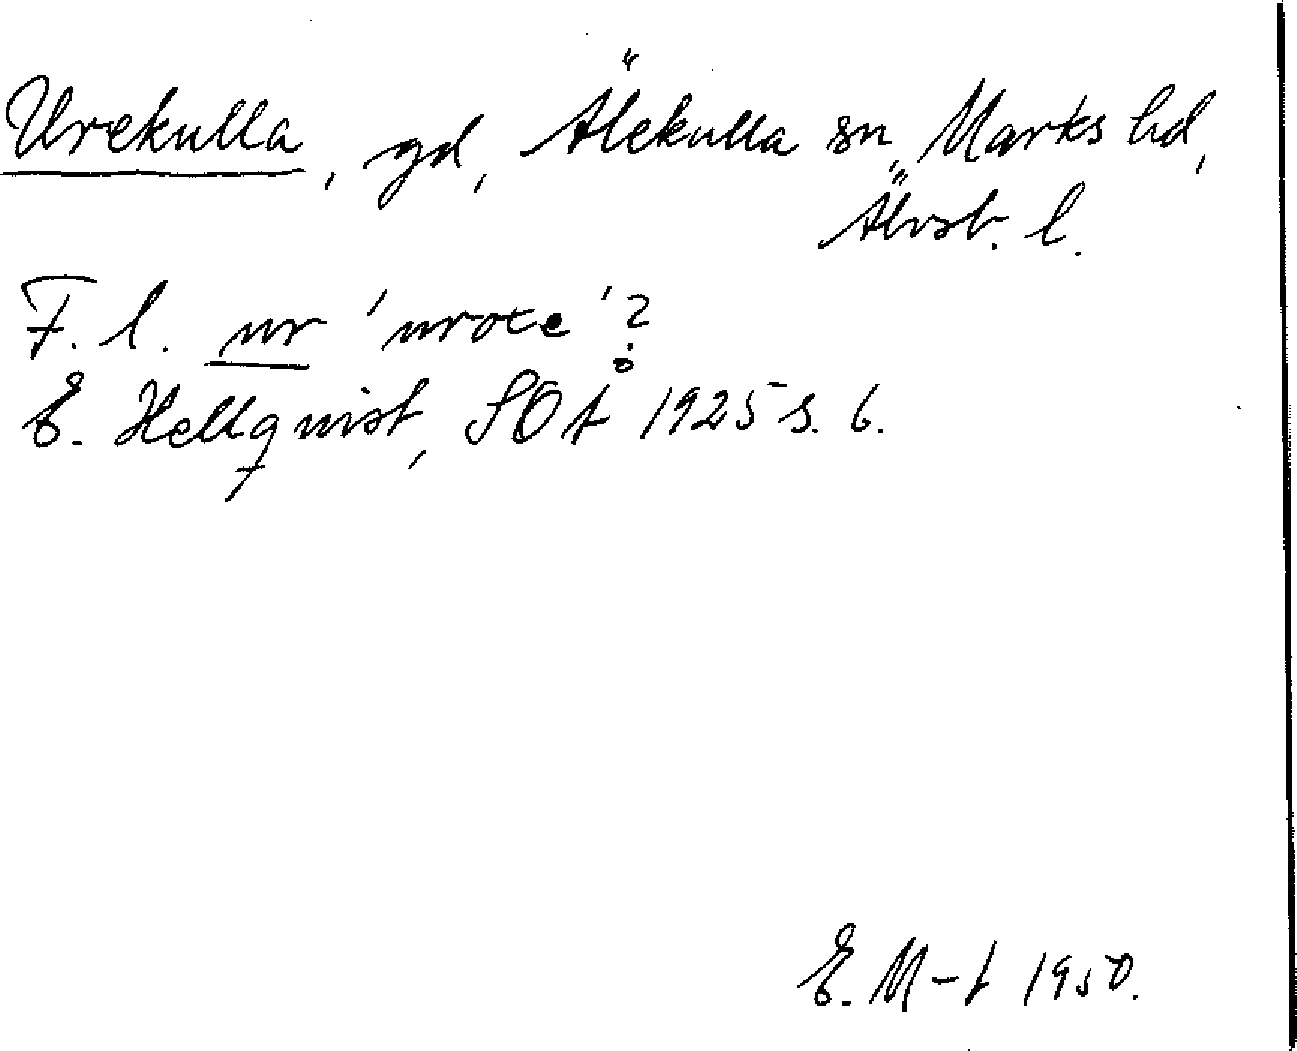 Urekulla, gd, Älekulla sn, Marks hd,
Älvsb. l.
F. l. ur 'uroxe'?
E. Hellquist, SOÅ 1925 s. 6.
E. M-t 1950.